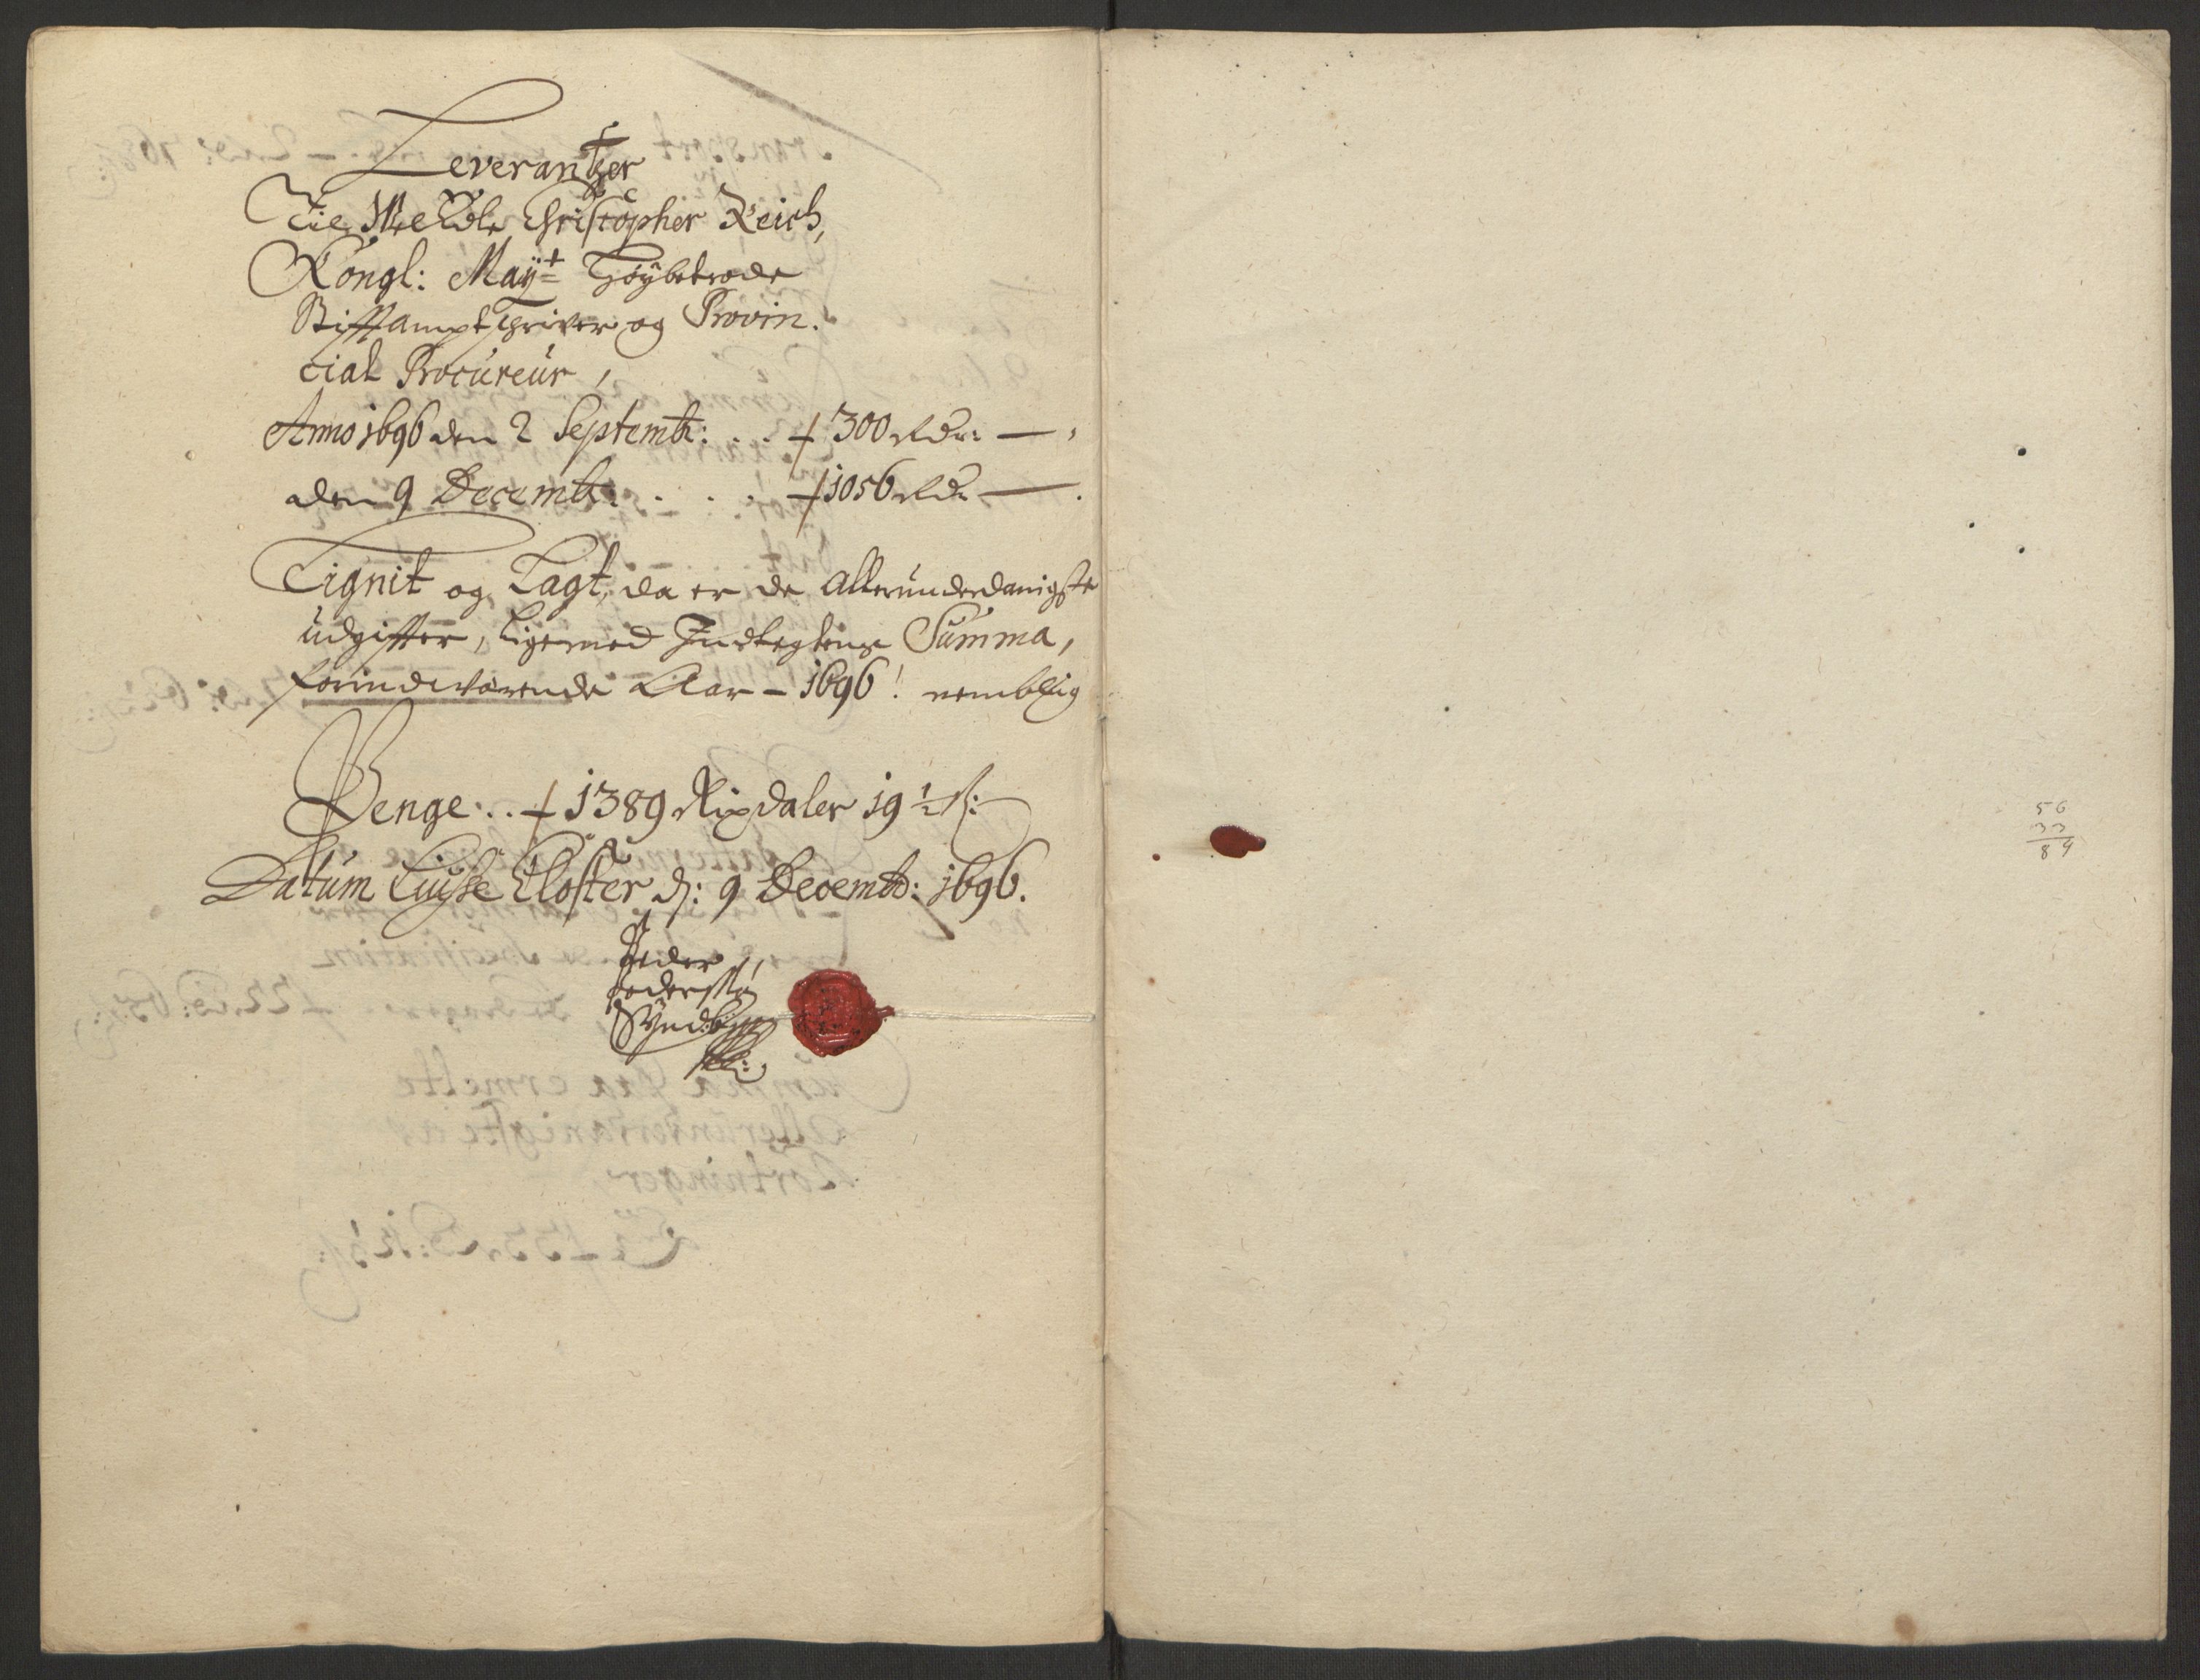 Leverantzer
Til Wel Edle Christopher Reich,
Kongl: Mayt Høybetrode
Stiftamptschriver og Provin.
cial Procureur,
Anno 1696 den 2 Septembr: . . . 300 Rdr: —
den 9 Decembr. . . . . 1056 Rdr —
Lignit og Lagt, da er de allerunderdanigste
udgiffter, ligemed Indtegtens Summa,
forindeværende Aar - 1696! nemblig
Penge: . . 1389 Rixdaler 19 1/2 s:
Datum Luisse Closter d: 9 Decembr: 1696.
Peder
Pedersøn
56
33
89